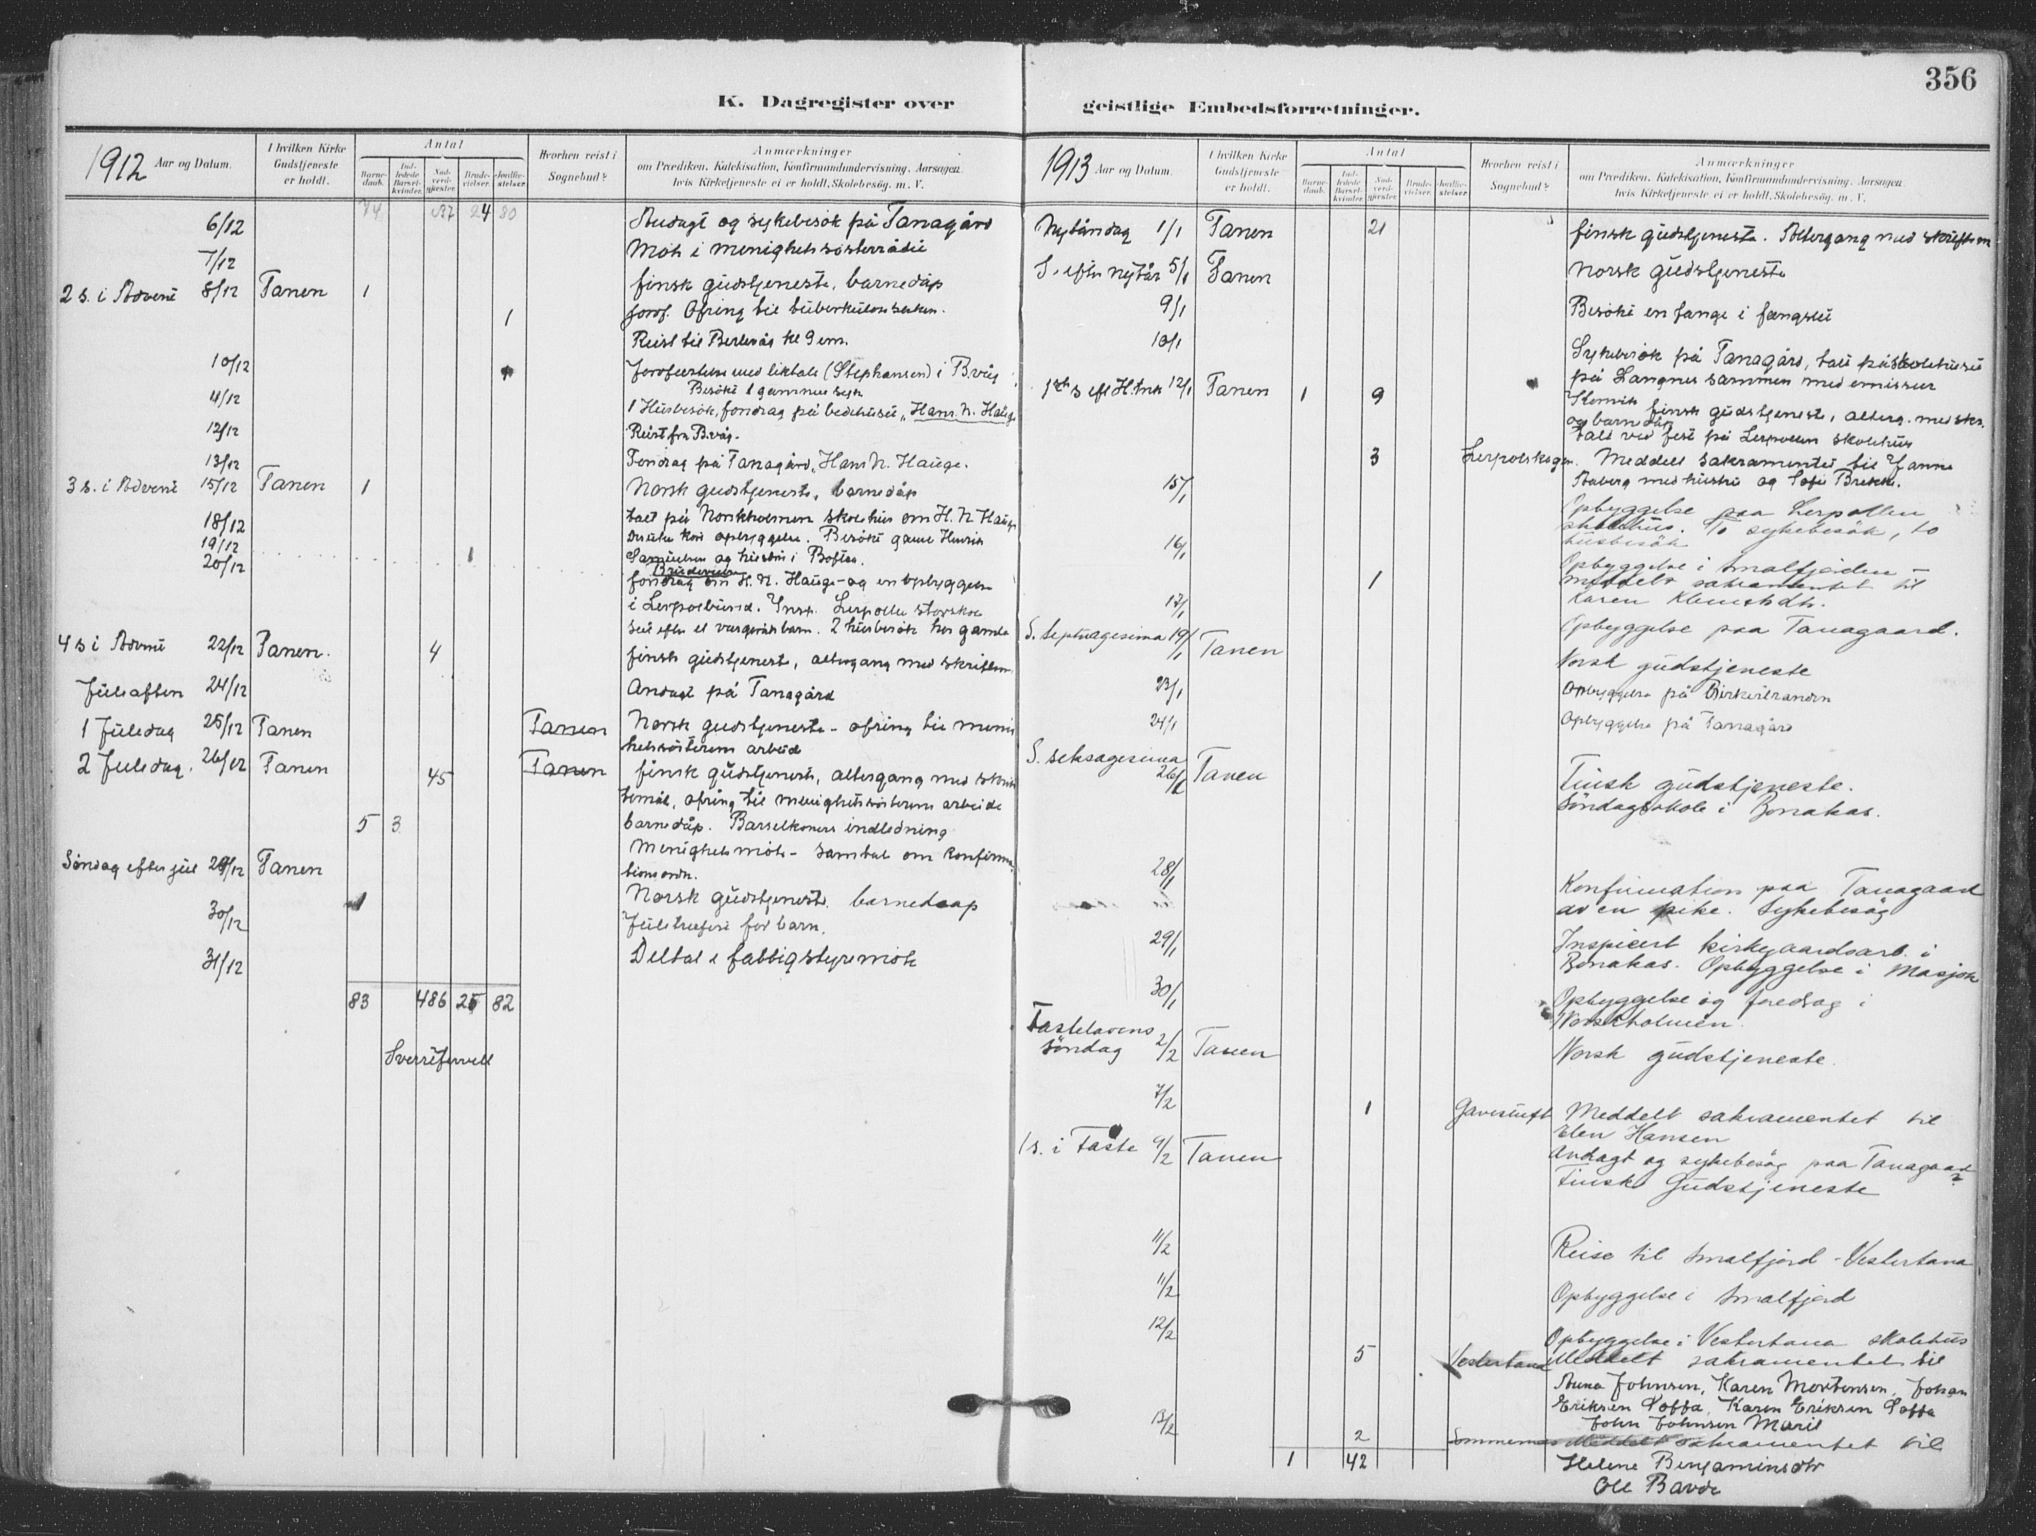 356
K. Dagregister over geistlige Embedsforretninger.
1912 Aar og Datum.
I hvilken Kirke Gudstjeneste er holdt.
Antal
Barne-daab.
Ind-ledede Barsel-kvinder.
Nad-verd-gjester.
Brude-vielser.
Jordfæ-stelser.
Hvorhen reist i Sognebud?
Anmærkninger
om Prædiken, Katekisation, Konfirmandundervisning, Aarsagen
hvis Kirketjeneste ei er holdt, Skolebesøg. m. V.
74 24 80
6/12 Andagt og sykebesøk på Tanagård
7/12 Møte i menighetssøsterrådet
2 s. i Advent 8/12 Tanen 1 finsk gudstjeneste, barnedåp
1 jordf. Ofring til tuberkulosesaken.
Reist til Berlevåg kl 9 em.
10/12 Jordfæstelse med liktale (Stephansen) i B.våg
11/12 Besøkt 1 gammel syk
1 Husbesøk, foredrag på bedehuset "Hans N. Hauge
12/12 Reist fra B.våg.
13/12 Foredrag på Tanagård, Hans N. Hauge.
3 s. i Advent 15/12 Tanen 1 Norsk gudstjeneste, barnedåp
18/12 talt på Norskholmen skolehus om H. N. Hauge
19/12 opbyggelse. Besøkt gamle Henrik
20/12 1 Samuelsen og hustru i Boftsa.
Brudevielse
foredrag om H. N. Hauge - og en opbyggelse
i Lerpolbund. Insp. Lerpollen storskole
2 husbesøk hos gamle
4 s i Advent 22/12 Tanen. 4 finsk gudstjeneste, altergang med skriftem.
Juleaften 24/12 Andagt på Tanagård
1 Juledag 25/12 Tanen Tanen Norsk gudstjeneste - ofring til menig
hetssøsterens arbeid
2 Juledag. 26/12 Tanen 45 Tanen finsk gudstjeneste, altergang med skrif
temål, ofring til menighetssøsterens arbeide
5 3 barnedåp. Barselkoners indledning
Menighetsmøte - samtal om konfirma-
Søndag efter jul 29/12 Tanen tionsordn.
1 Norsk gudstjeneste. barnedaap
30/12 Juletræfest for barn.
31/12 Deltat i fattigstyremøte
83 486 25 82
Sverre Fervell
1913 Aar og Datum.
I hvilken Kirke Gudstjeneste er holdt.
Antal
Barne-daab.
Ind-ledede Barsel-kvinder.
Nad-verd-gjester.
Brude-vielser.
Jordfæ-stelser.
Hvorhen reist i Sognebud?
Anmærkninger
om Prædiken, Katekisation, Konfirmandundervisning, Aarsagen
hvis Kirketjeneste ei er holdt, Skolebesøg. m. V.
Nytårsdag 1/1 Tanen 21 finsk gudstjeneste. Altergang med skriftem
S. efter nytår 5/1 Tanen Norsk gudstjeneste
9/1 Besøkt en fange i fængslet
10/1 Sykebesøk på Tanagård, talt på skolehuset
på Langnes sammen med emissær
1ste s eft H.trek 12/1 Tanen 1 9 finsk gudstjeneste, alterg. med skr.
og barnedåp
Tale ved fest på Lerpollen skolehus
3 Lerpolskogen. Meddelt sakramentet til Janna
15/1 Aaberg med hustru og Sofie
Opbyggelse paa Lerpollen
skolehus. To sykebesøk, to
16/1 husbesøk
Opbyggelse i Smalfjorden -
1 meddelt sakramentet til
17/1 Karen
Opbyggelse paa Tanagaard.
S. Septuagesima 19/1 Tanen Norsk gudstjeneste
23/1 Opbyggelse på Birkestranden
24/1 Opbyggelse på Tanagård
S. seksagesima 26/1 Tanen Finsk gudstjeneste.
Søndagsskole i Bonakas.
28/1 Konfirmation paa Tanagaard
av en pike. Sykebesøg
29/1 Inspicert kirkegaardsarb. i
Bonakas. Opbyggelse i Masjok
30/1 Opbyggelse og foredrag i
Norskholmen.
Fastelavens søndag 2/2 Tanen Norsk gudstjeneste.
7/2 1 Gavesluft Meddelt sakramentet til
Elen Hansen
1 s. i Faste 9/2 Tanen Andagt og sykebesøg paa Tanagaard
Finsk Gudstjeneste
11/2 Reise til Smalfjord - Vestertana
11/2 Opbyggelse i Smalfjord
12/2 Opbyggelse i Vestertana skolehus
5 Vestertana Meddelt sakramentet til
Anna Johnsen, Karen Mortensen, Johan
Eriksen Noffa, Karen Eriksen Noffa
13/2 John Johnsen Marit
2 Sommernes Meddelt sakramentet til
1 42 Helene Benjaminsdtr
Ole Bavda